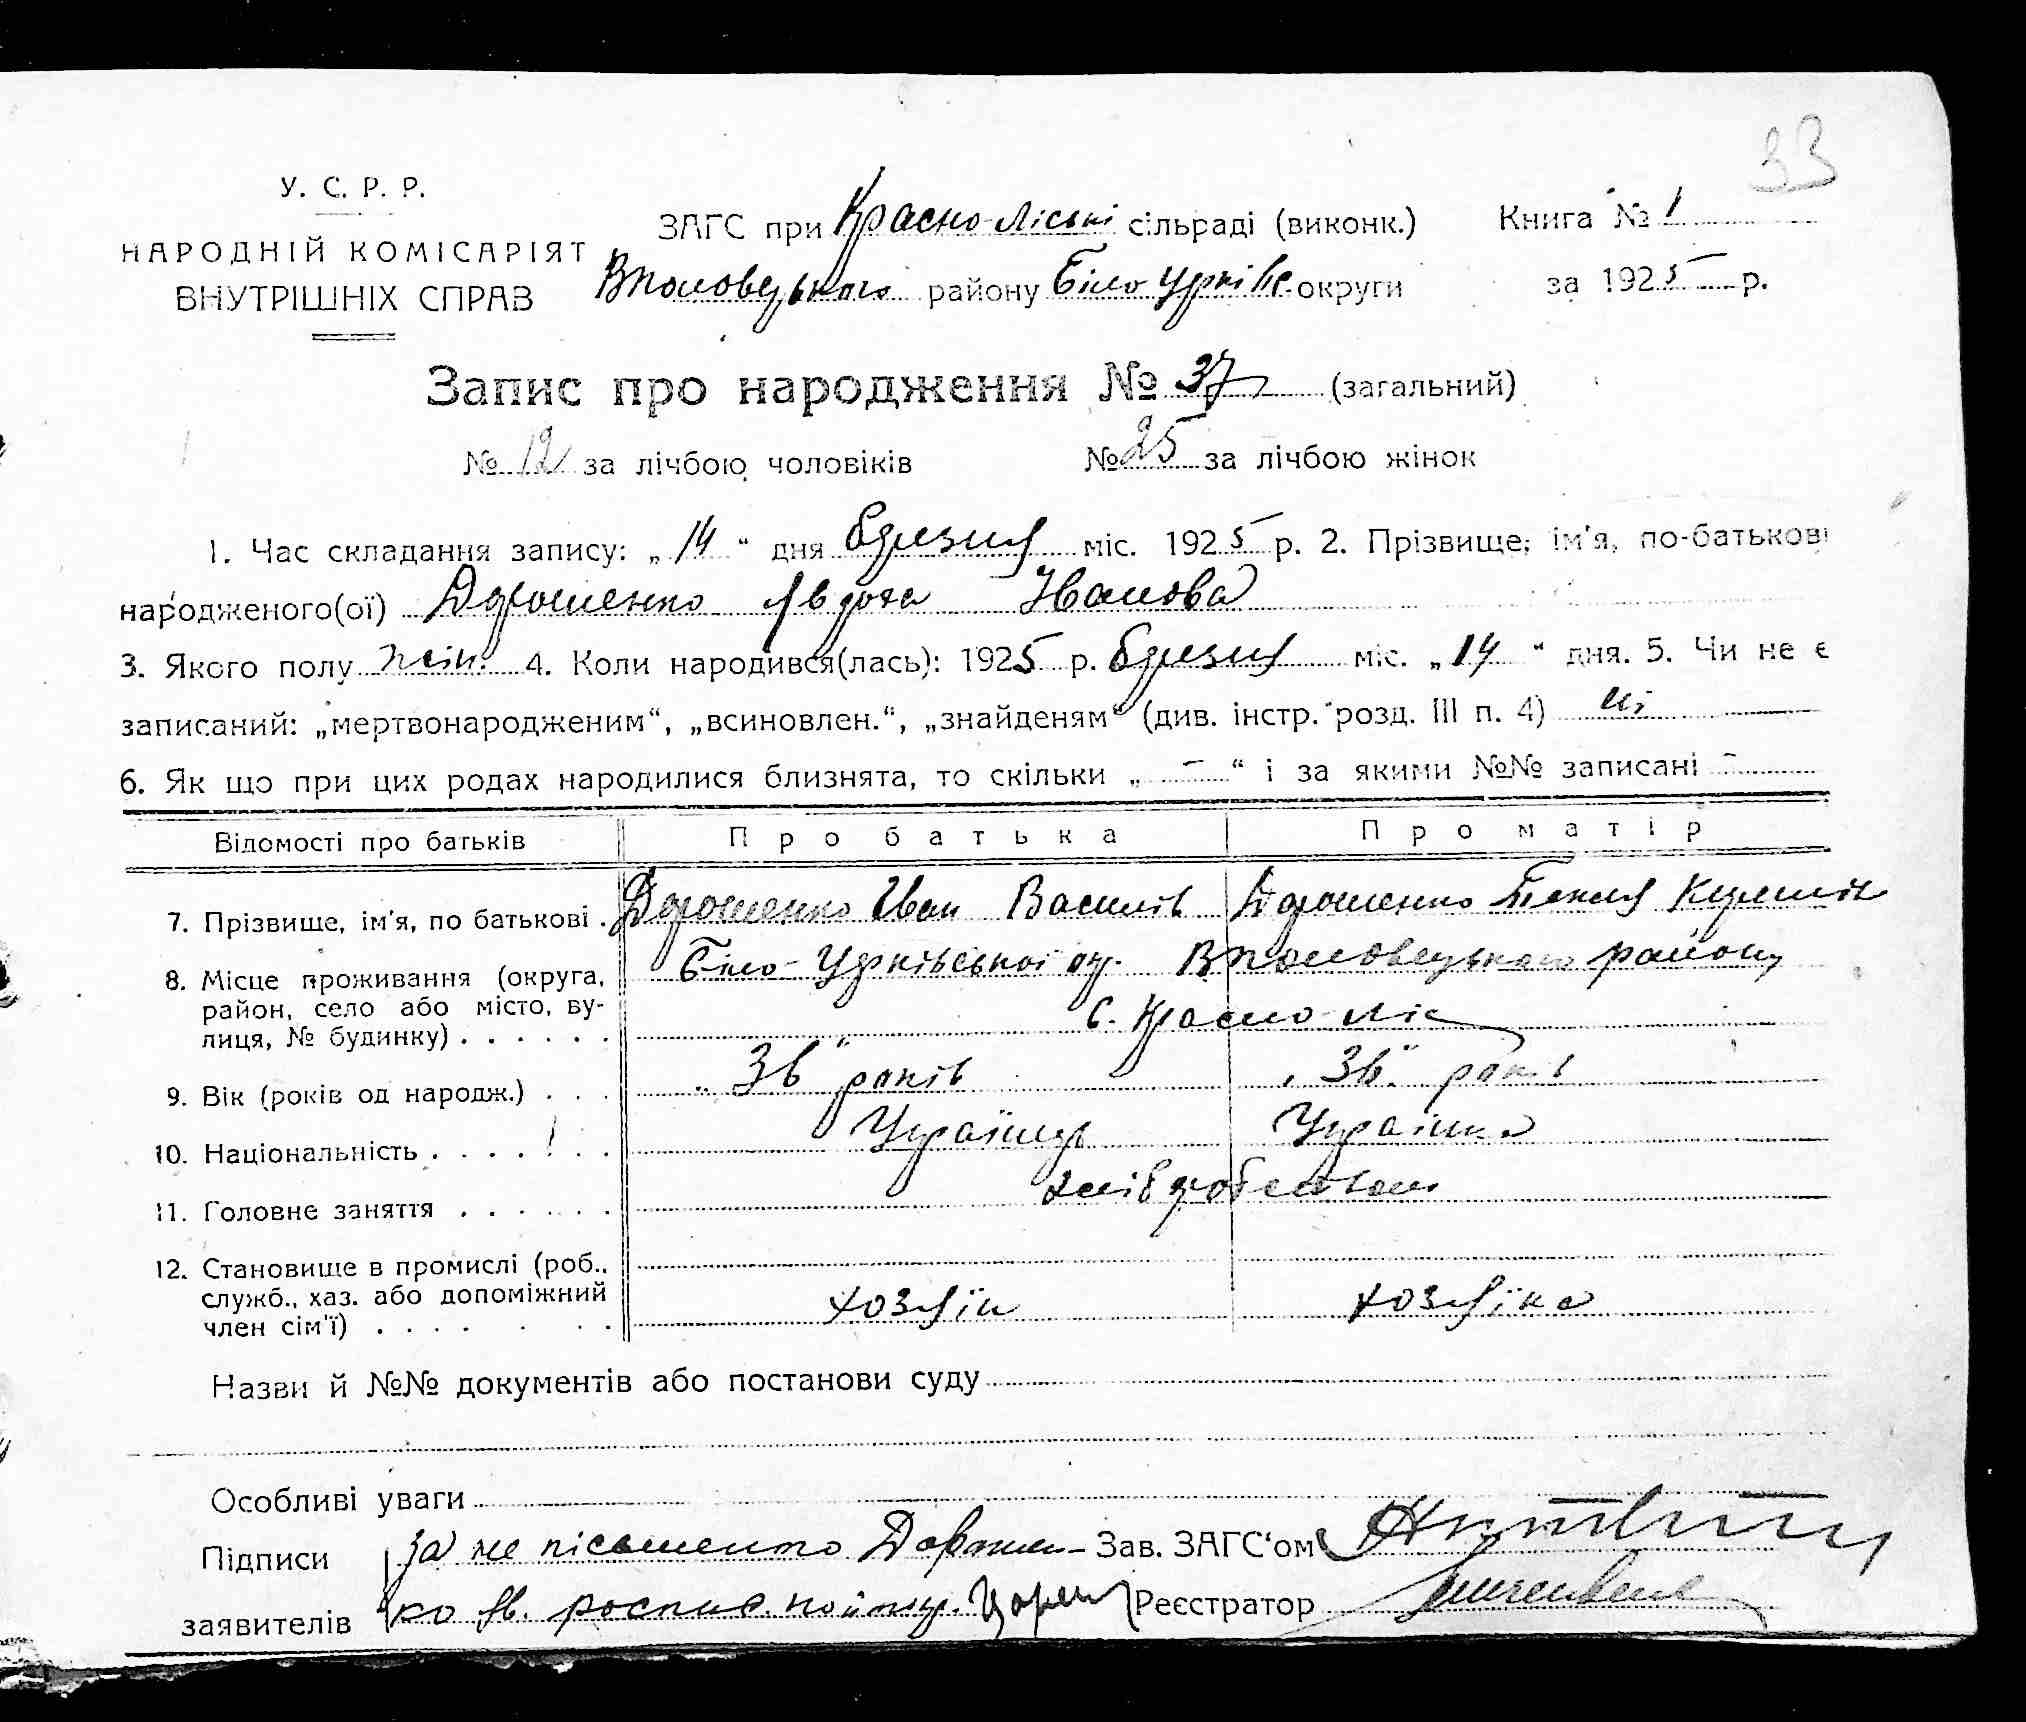 33
У. С. Р. Р.
НАРОДНІЙ КОМІСАРІЯТ
ВНУТРІШНІХ СПРАВ
ЗАГС при Красно-Ліські сільраді (виконк.)
Вполовецького району Біло Церківс. округи
Книга № 1
за 1925 р.
Запис про народження № 37 (загальний)
№ 12 за лічбою чоловіків № 25 за лічбою жінок
1. Час складання запису: „ 14 “ дня березня міс. 1925 р. 2. Прізвище, ім'я, по-батькові
народженого(ої) Дорошенко Явдоха Іванова
3. Якого полу жін. 4. Коли народився(лась): 1925 р. березня міс. „ 14 “ дня. 5. Чи не є
записаний: „мертвонародженим“, „всиновлен.“, „знайденям“ (див. інстр. розд. III п. 4) ні
6. Як що при цих родах народилися близнята, то скільки „ – “ і за якими №№ записані –
Відомості про батьків Про батька Про матір
7. Прізвище, ім'я, по батькові . Дорошенко Іван Василів Дорошенко Текля
8. Місце проживання (округа, район, село або місто, вулиця, № будинку) . . . . . . Біло-Церківської окр. Вполовецького району
с. Красно Ліс
9. Вік (років од народж.) . . . „ 36 “ років „ 36 “ років
10. Національність . . . . . . . Українець Українка
11. Головне заняття . . . . . . хліборобством
12. Становище в промислі (роб., служб., хаз. або допоміжний член сім'ї) . . . . . . . хозяїн хозяїка
Назви й №№ документів або постанови суду
Особливі уваги
Підписи за не пісьменого Дорошен- Зав. ЗАГС'ом
заявителів ко Ів. роспис. Реєстратор